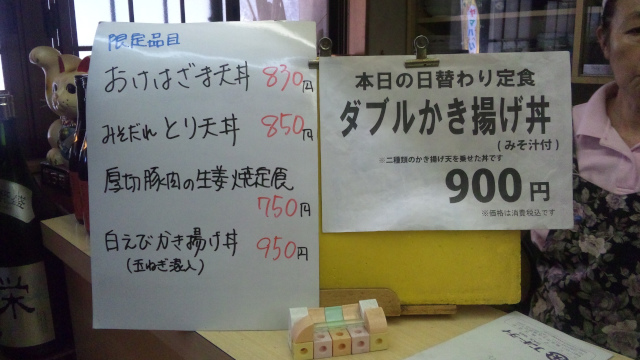 限定品目
おけはざま天丼 830円
みそだれ とり天丼 850円
厚切豚肉の生姜焼定食
750円
白えびかき揚げ丼 950円
(玉ねぎ混入)
本日の日替わり定食
ダブルかき揚げ丼
(みそ汁付)
※二種類のかき揚げ天を乗せた丼です
900円
※価格は消費税込です
栄